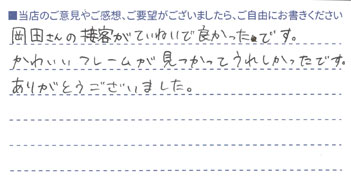 ■当店のご意見やご感想、ご要望がございましたら、ご自由にお書きください
岡田さんの接客がていねいで良かったです。
かわいいフレームが見つかってうれしかったです。
ありがとうございました。